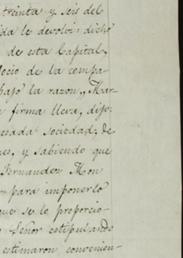 treinta y seis del
ida le devolví: dicho
de esta Capital,
ocio de la compa
bajo la razon, "Mar
a firma lleva, dijo:
esada Sociedad, de
es, y sabiendo que
Fernandez Mon
para imponerlo
que se le proporcio
Señor estipulando
estimaron convenien-